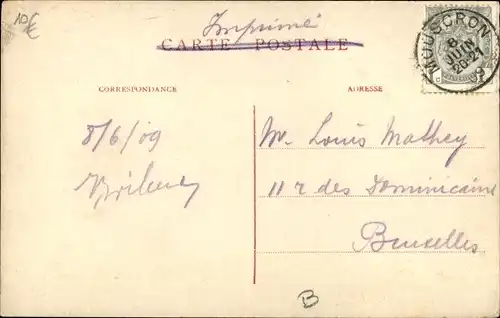 10€
Imprimé
CARTE POSTALE
MOUSCRON
8
JUIN
20-21
09
CORRESPONDANCE
ADRESSE
8/6/09
Mr. Louis Mathey
11 r des Dominicains
Bruxelles
B